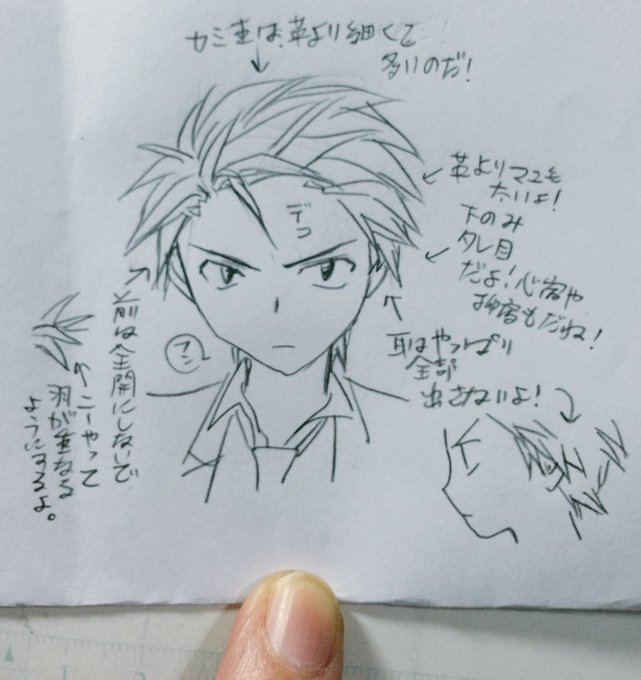 カミ毛は、革より細くて
多いのだ!
革よりマユも
太いよ!
下のみ
タレ目
だよ!心宮や
柳宮もだね!
デコ
耳はやっぱり
全部
出さないよ!
前は全開にしないで
こーやって
羽が重なる
ようにするよ。